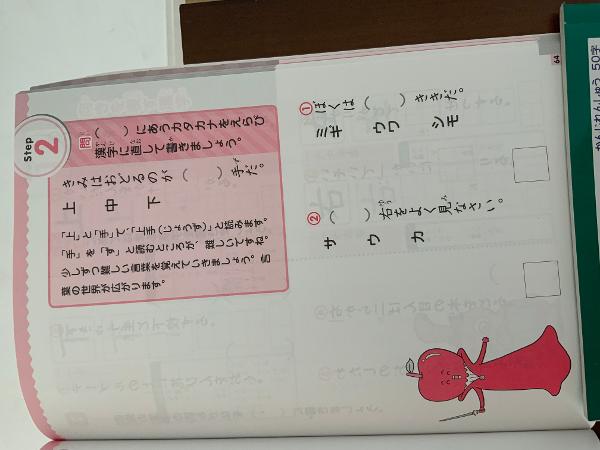 Step
2
問 （　）にあうカタカナをえらび
漢字に直して書きましょう。
きみはおどるのが（　）手だ。
上　中　下
「上」と「手」で、「上手（じょうず）」と読みます。
「手」を「ず」と読むところが、難しいですね。
少しずつ難しい言葉を覚えていきましょう。言
葉の世界が広がります。
① ぼくは（　）ききだ。
ミギ　ウワ　シモ
② （　）右をよく見なさい。
サ　ウ　カ
64
かんじれんしゅう 50字